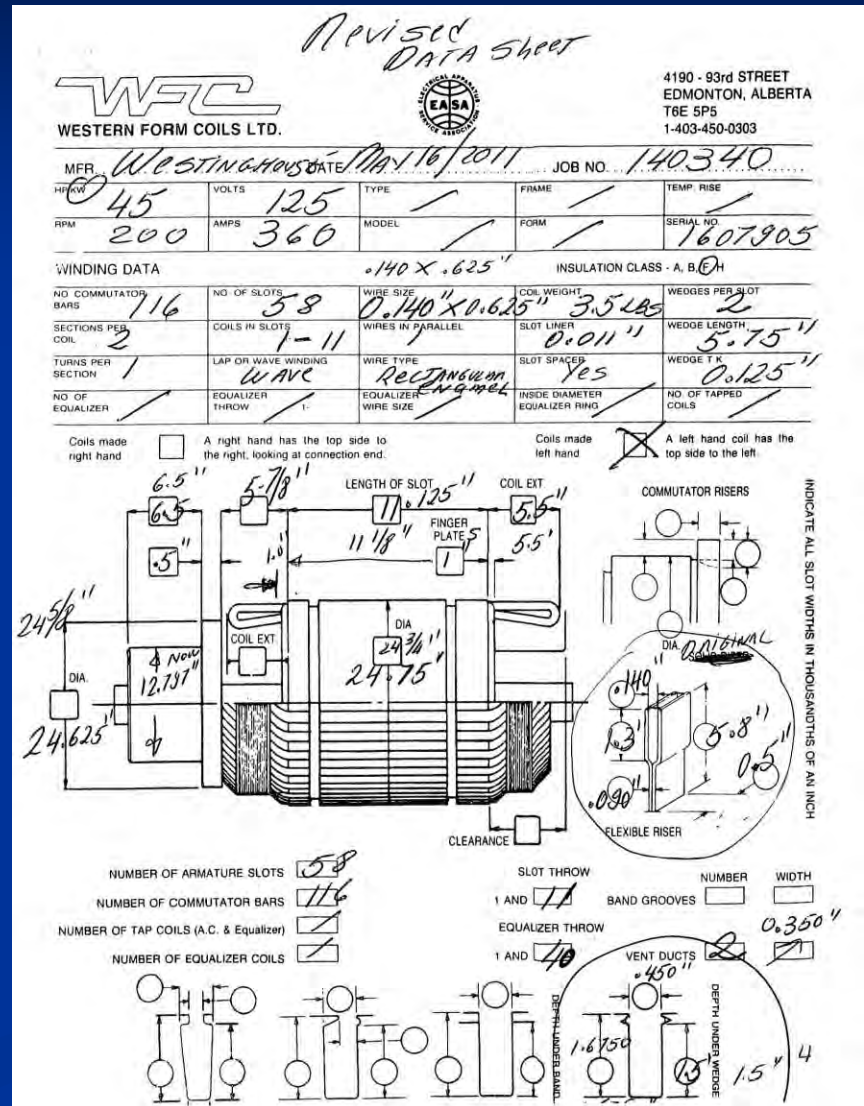 Revised
DATA Sheet
WFC
WESTERN FORM COILS LTD.
ELECTRICAL APPARATUS SERVICE ASSOCIATION
EASA
4190 - 93rd STREET
EDMONTON, ALBERTA
T6E 5P5
1-403-450-0303
MFR. Westinghouse DATE MAY 16/2011 JOB NO. 140340
HP KW 45 VOLTS 125 TYPE / FRAME / TEMP. RISE /
RPM 200 AMPS 360 MODEL / FORM / SERIAL NO. 1607905
WINDING DATA .140 X .625" INSULATION CLASS - A, B, F, H
NO COMMUTATOR BARS 116 NO. OF SLOTS 58 WIRE SIZE 0.140" X 0.625" COIL WEIGHT 3.5 LBS WEDGES PER SLOT 2
SECTIONS PER COIL 2 COILS IN SLOTS 1-11 WIRES IN PARALLEL 1 SLOT LINER 0.011" WEDGE LENGTH 5.75"
TURNS PER SECTION 1 LAP OR WAVE WINDING WAVE WIRE TYPE RECTANGULAR ENAMEL SLOT SPACER Yes WEDGE T K 0.125"
NO OF EQUALIZER / EQUALIZER THROW / 1- EQUALIZER WIRE SIZE / INSIDE DIAMETER EQUALIZER RING / NO. OF TAPPED COILS /
Coils made right hand A right hand has the top side to the right, looking at connection end. Coils made left hand X A left hand coil has the top side to the left
6.5" 5-7/8" LENGTH OF SLOT COIL EXT.
6.5 11.125" 5.5"
COMMUTATOR RISERS
.5" 1.0" 11 1/8" FINGER PLATES 1" 5.5'
INDICATE ALL SLOT WIDTHS IN THOUSANDTHS OF AN INCH
24 5/8"
COIL EXT. DIA 24 3/4"
24.75"
DIA. NOW 12.797"
24.625"
DIA. ORIGINAL
.140"
1.3" 5.8"
0.5"
.090"
FLEXIBLE RISER
CLEARANCE
NUMBER OF ARMATURE SLOTS 58
NUMBER OF COMMUTATOR BARS 116
NUMBER OF TAP COILS (A.C. & Equalizer) /
NUMBER OF EQUALIZER COILS /
SLOT THROW
1 AND 11
EQUALIZER THROW
1 AND 40
NUMBER WIDTH
BAND GROOVES
0.350"
VENT DUCTS 2
.450"
DEPTH UNDER BAND
DEPTH UNDER WEDGE
1.6750
1.5" 1.5" 4